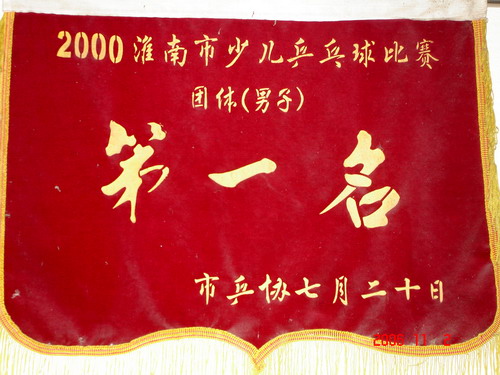 2000淮南市少儿乒乓球比赛
团体(男子)
第一名
市乒协七月二十日